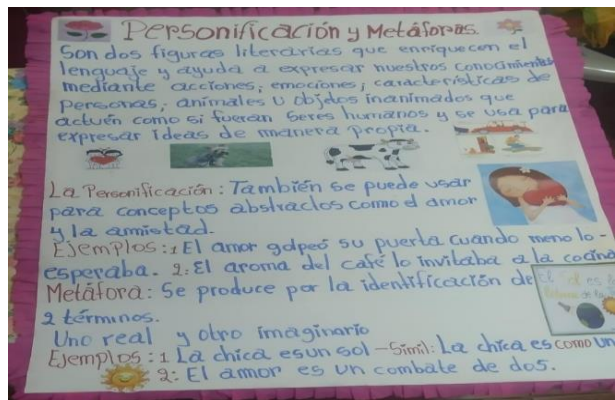 Personificación y Metáforas.
Son dos figuras literarias que enriquecen el
lenguaje y ayuda a expresar nuestros conocimientos
mediante acciones, emociones, características de
personas, animales u objetos inanimados que
actuén como si fueran seres humanos y se usa para
expresar ideas de manera propia.
La Personificación: También se puede usar
para conceptos abstractos como el amor
y la amistad.
Ejemplos: 1 El amor golpeó su puerta cuando meno lo-
esperaba. 2: El aroma del café lo invitaba a la cocina
Metáfora: Se produce por la identificación de
2 términos.
Uno real y otro imaginario
Ejemplos: 1 La chica es un sol - Simil: La chica es como un
2: El amor es un combate de dos.
El Sol es